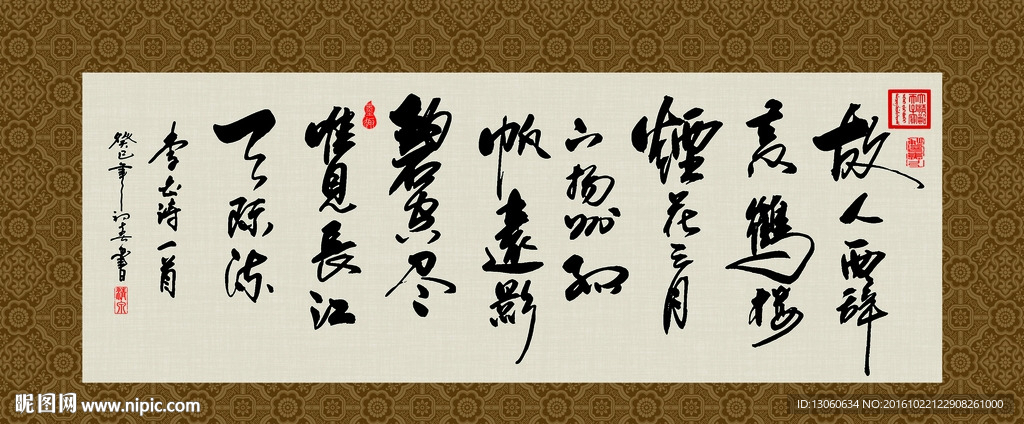 故人西辞
黄鶴楼
煙花三月
下揚州孤
帆遠影
碧空尽
唯見長江
天际流
李白诗一首
癸巳年初春書
昵图网 www.nipic.com
ID:13060634 NO:20161022122908261000